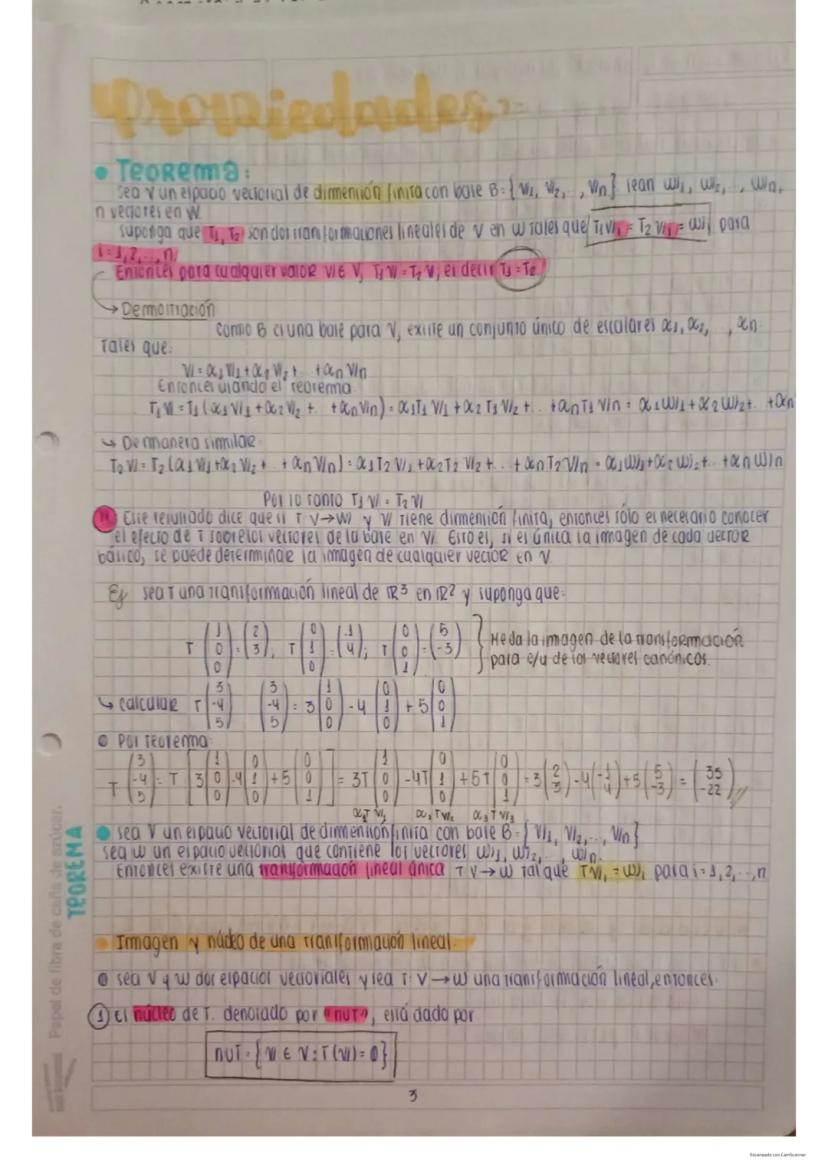 Propiedades:
• Teorema:
Sea V un espacio vectorial de dimensión finita con base B={v1, v2, . , vn} sean w1, w2, .. , wn,
n vectores en W.
Suponga que T1, T2 son dos transformaciones lineales de V en W tales que T1v1 = T2 v1 = wi para
i = 1, 2, .., n
Entonces para cualquier valor v∈ V, T1 v = T2 v, es decir T1 = T2
↳ Demostración
Como B es una base para V, existe un conjunto único de escalares α1, α2, , αn.
Tales que:
v = α1 v1 + α2 v2 + . + αn vn
Entonces usando el teorema
T1 v = T1 (α1 v1 + α2 v2 + .. + αn vn) = α1T1 v1 + α2 T1 v2 + .. + αn T1 vn = α1w1 + α2 w2 + . + αn
↳ De manera similar
T2 v = T2 (α1 v1 + α2 v2 + . + αn vn) = α1 T2 v1 + α2 T2 v2 + .. + αn T2 vn = α1 w1 + α2 w2 + .. + αn wn
Por lo tanto T1 v = T2 v
Este resultado dice que si T V→W y V tiene dimensión finita, entonces sólo es necesario conocer
el efecto de T sobre los vectores de la base en V. Esto es, si es única la imagen de cada vector
básico, se puede determinar la imagen de cualquier vector en V.
Ej sea T una transformación lineal de ℝ³ en ℝ² y suponga que:
T (1 0 0) = (2 3), T (0 1 0) = (-1 4); T (0 0 1) = (5 -3) } Me da la imagen de la transformación
para c/u de los vectores canónicos.
↳ calcular T (3 -4 5) (3 -4 5) = 3 (1 0 0) - 4 (0 1 0) + 5 (0 0 1)
Por teorema:
T (3 -4 5) = T [3 (1 0 0) - 4 (0 1 0) + 5 (0 0 1)] = 3T (1 0 0) - 4T (0 1 0) + 5T (0 0 1) = 3 (2 3) - 4 (-1 4) + 5 (5 -3) = (35 -22)
α1T v1 α2 T v2 α3 T v3
TEOREMA
• Sea V un espacio vectorial de dimensión finita con base B = {v1, v2, .., vn}
sea w un espacio vectorial que contiene los vectores w1, w2, .. , wn.
Entonces existe una transformación lineal única T V→W tal que Tvi = wi para i = 1, 2, .., n
• Imagen y núcleo de una transformación lineal:
sea V y W dos espacios vectoriales y sea T: V → W una transformación lineal, entonces.
① El núcleo de T. denotado por "nuT", está dado por
nuT = {v ∈ V : T(v) = 0}
3
Papel de fibra de caña de azúcar.
Escaneado con CamScanner